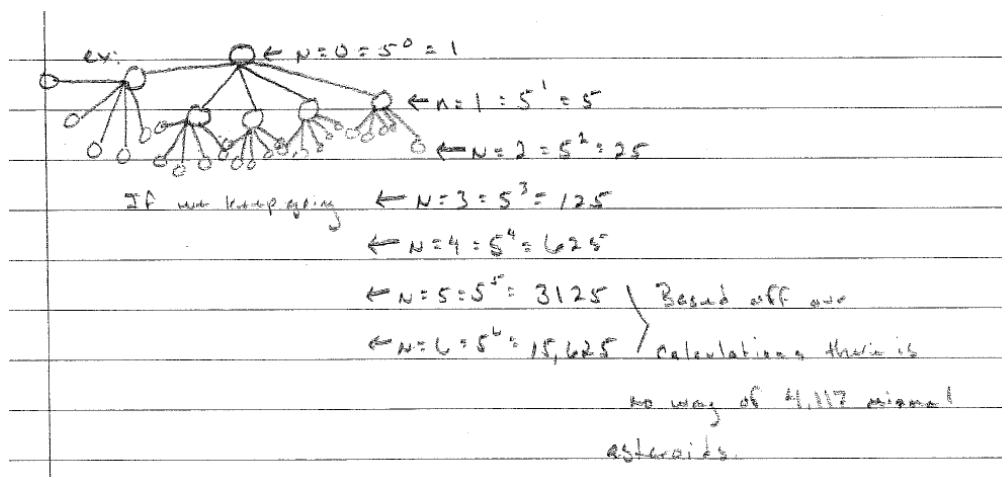 ex: ← N=0=5^0=1
← n=1=5^1=5
← N=2=5^2=25
If we keep going ← N=3=5^3=125
← N=4=5^4=625
← N=5=5^5=3125 } Based off our
← N=6=5^6=15,625 calculations there is
no way of 4,117
asteroids.